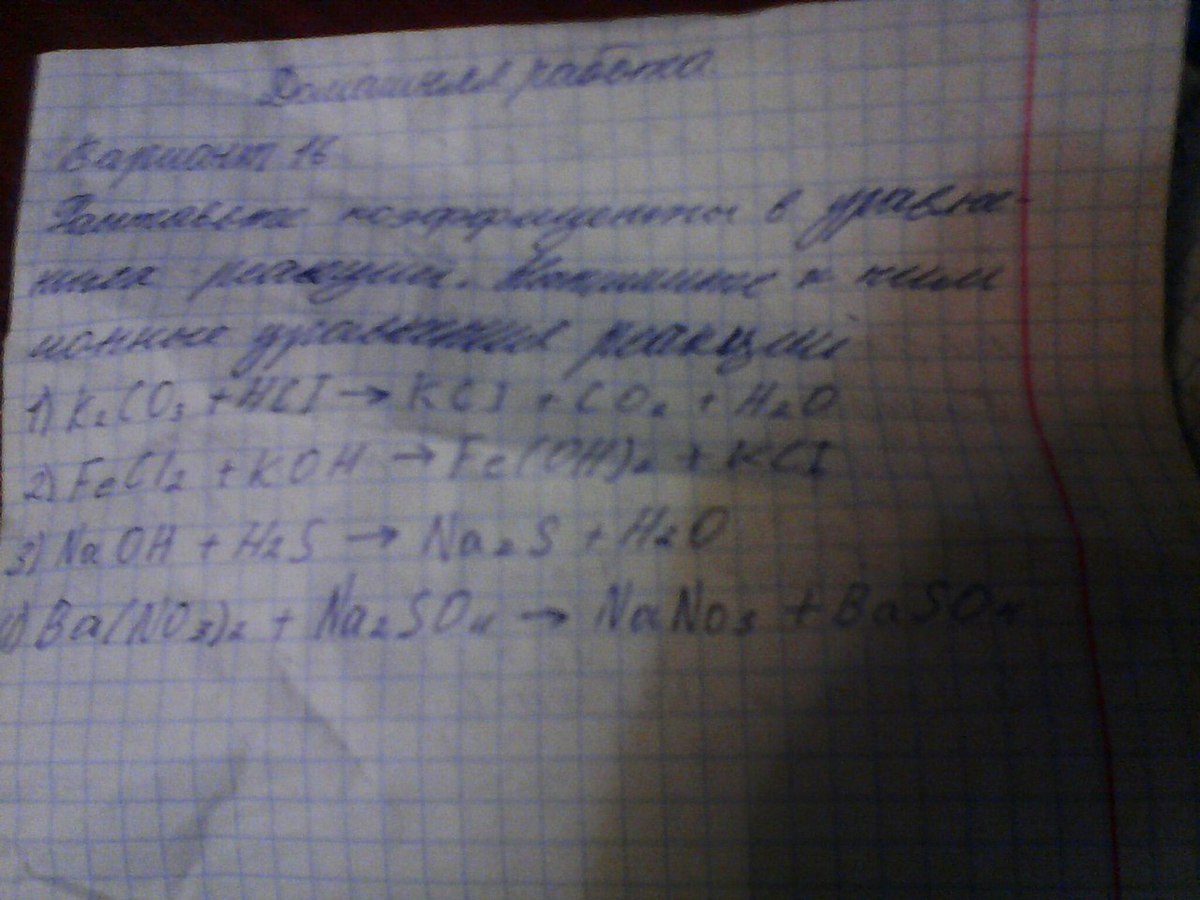 Домашняя работа
Вариант 16
Расставьте коэффициенты в уравне-
ниях реакций. Напишите к ним
ионные уравнения реакций
1) K₂CO₃ + HCl → KCl + CO₂ + H₂O
2) FeCl₂ + KOH → Fe(OH)₂ + KCl
3) NaOH + H₂S → Na₂S + H₂O
Ba(NO₃)₂ + Na₂SO₄ → NaNO₃ + BaSO₄